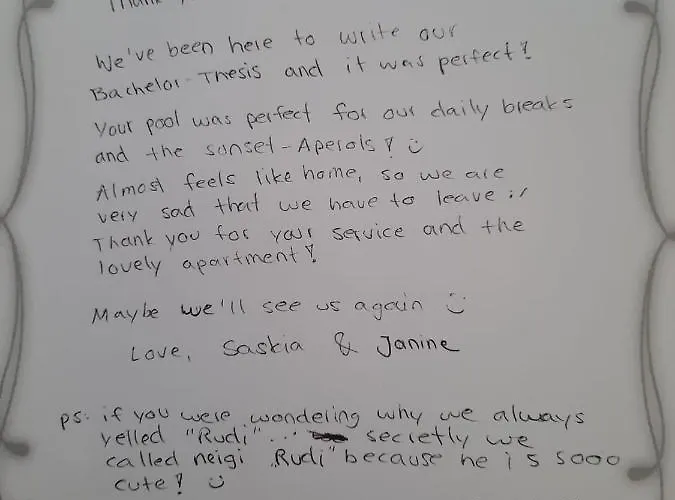 Thank
We've been here to write our
Bachelor-Thesis and it was perfect!
Your pool was perfect for our daily breaks
and the sunset-Aperols! :)
Almost feels like home, so we are
very sad that we have to leave :/
Thank you for your service and the
lovely apartment!
Maybe we'll see us again :)
Love, Saskia & Janine
ps: if you were wondering why we always
yelled "Rudi"... secretly we
called neigi „Rudi" because he is sooo
cute! :)